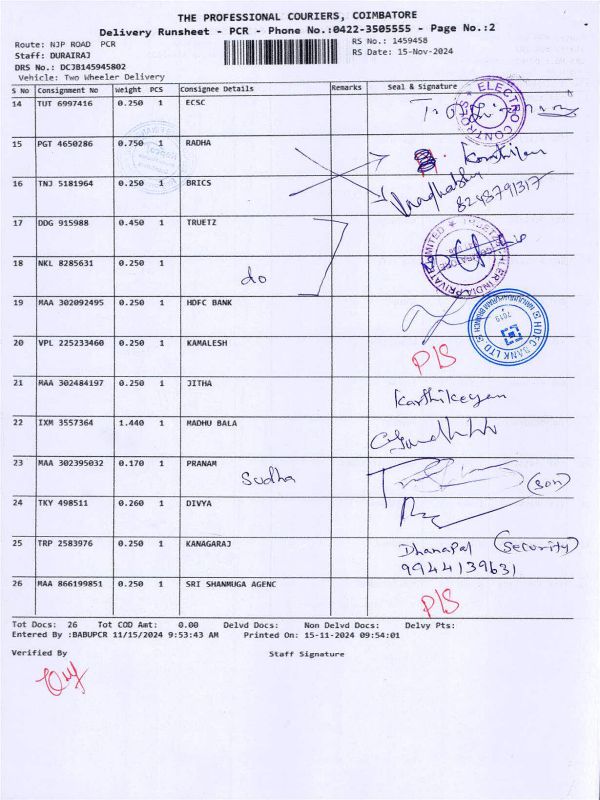 THE PROFESSIONAL COURIERS, COIMBATORE
Delivery Runsheet - PCR - Phone No.:0422-3505555 - Page No.:2
Route: NJP ROAD PCR
RS No.: 1459458
Staff: DURAIRAJ
RS Date: 15-Nov-2024
DRS No.: DCJB145945802
Vehicle: Two Wheeler Delivery
S No Consignment No Weight PCS Consignee Details Remarks Seal & Signature
14 TUT 6997416 0.250 1 ECSC
ELECTRO CONTROLS
15 PGT 4650286 0.750 1 RADHA
16 TNJ 5181964 0.250 1 BRICS
8248791317
17 DDG 915988 0.450 1 TRUETZ
18 NKL 8285631 0.250 1 do
19 MAA 302092495 0.250 1 HDFC BANK
HDFC BANK LTD
20 VPL 225233460 0.250 1 KAMALESH P/S
21 MAA 302484197 0.250 1 JITHA Karthikeyan
22 IXM 3557364 1.440 1 MADHU BALA
23 MAA 302395032 0.170 1 PRANAM Sudha (son)
24 TKY 498511 0.260 1 DIVYA
25 TRP 2583976 0.250 1 KANAGARAJ Dhanapal (Security)
9944139631
26 MAA 866199851 0.250 1 SRI SHANMUGA AGENC P/S
Tot Docs: 26 Tot COD Amt: 0.00 Delvd Docs: Non Delvd Docs: Delvy Pts:
Entered By :BABUPCR 11/15/2024 9:53:43 AM Printed On: 15-11-2024 09:54:01
Verified By Staff Signature